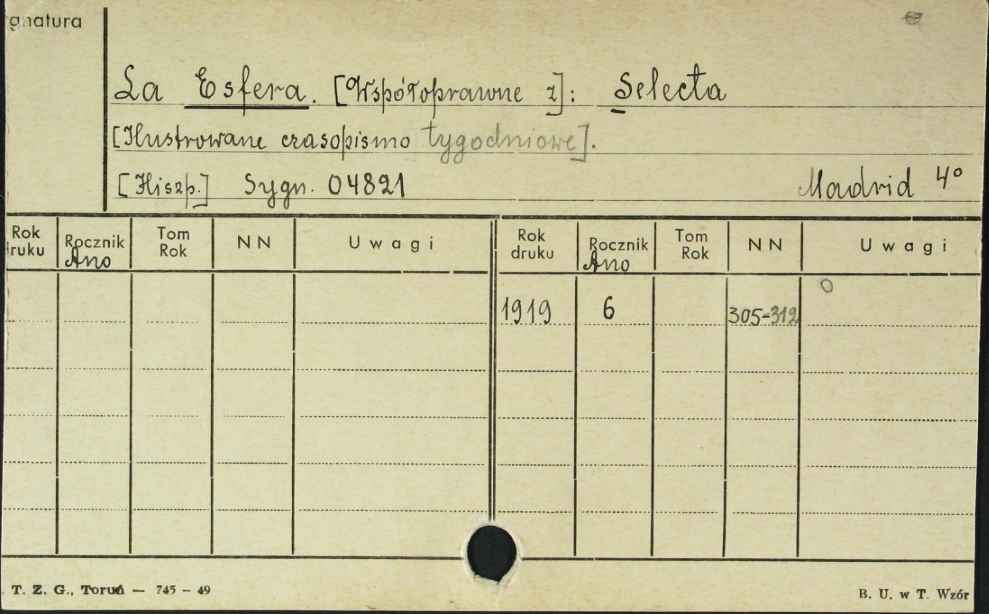 gnatura
La Esfera. [Współoprawne z]: Selecta
[Ilustrowane czasopismo tygodniowe].
[Hiszp.] Sygn. 04821 Madrid 4°
Rok druku Rocznik Ano Tom Rok NN Uwagi Rok druku Rocznik Ano Tom Rok NN Uwagi
1919 6 305-312
T. Z. G., Toruń — 745 - 49 B. U. w T. Wzór